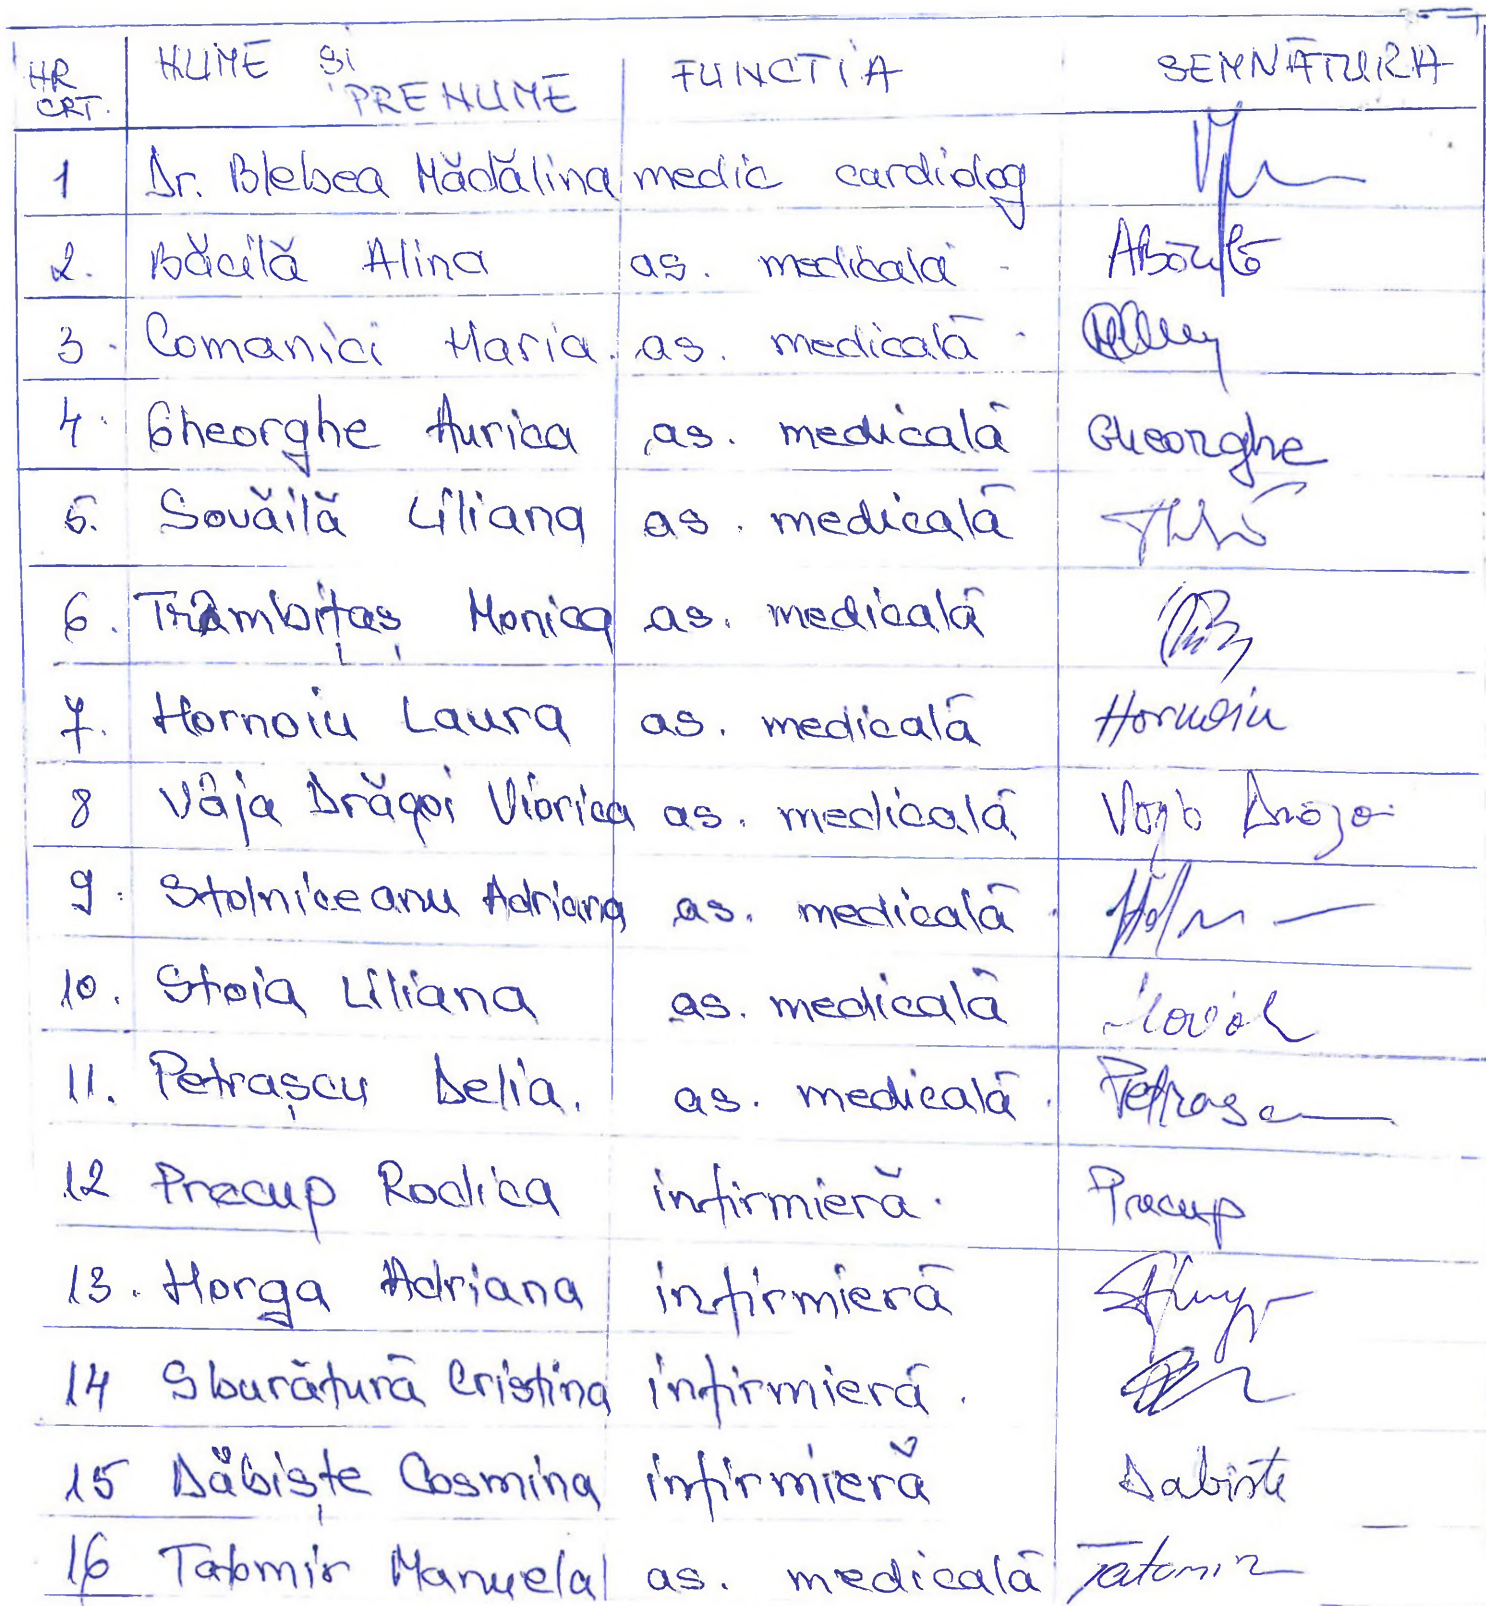 NR CRT. NUME ȘI PRENUME FUNCTIA SEMNĂTURA
1 Dr. Blebea Mădălina medic cardiolog
2. Băcilă Alina as. medicală ABăcilă
3. Comanici Maria as. medicală
4. Gheorghe Aurica as. medicală Gheorghe
5. Sovăilă Liliana as. medicală
6. Trâmbițaș Monica as. medicală
7. Hornoiu Laura as. medicală Hornoiu
8 Vâja Drăgoi Viorica as. medicală
9. Stolniceanu Adriana as. medicală
10. Stoia Liliana as. medicală
11. Petrașcu Delia. as. medicală Petrascu
12 Precup Rodica infirmieră. Precup
13. Horga Adriana infirmieră
14 Sburătură Cristina infirmieră.
15 Dăbiște Cosmina infirmieră Dabiste
16 Tatomir Manuela as. medicală Tatomir